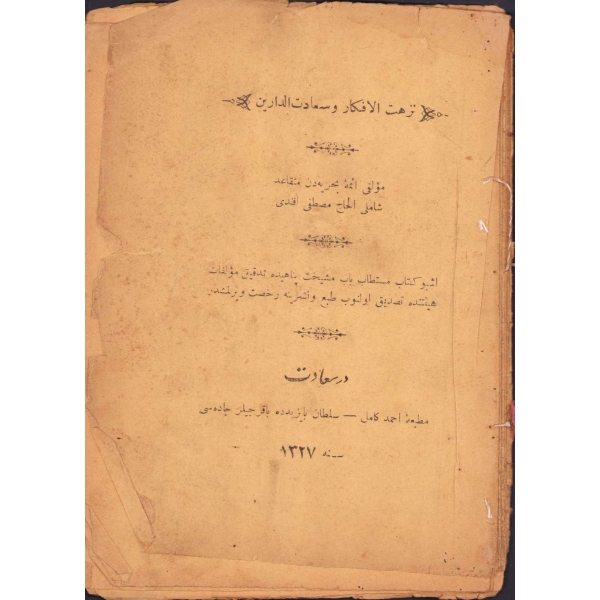 نزهت الافكار و سعادت الدارين
مؤلفى ائمهٔ بحريه‌دن متقاعد
شاملى الحاج مصطفى افندى
اشبو كتاب مستطاب باب مشيخت پناهيده تدقيق مؤلفات
هيئتنده تصديق اولنوب طبع و نشرينه رخصت ويرلمشدر
درسعادت
مطبعهٔ احمد كامل — سلطان بايزيدده باقرجيلر جاده‌سى
سنه ١٣٢٧